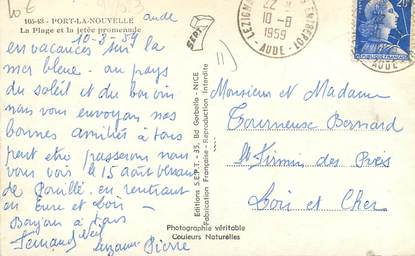 105-43 - PORT-LA-NOUVELLE
aude
La Plage et la jetée promenade
10-8-59
en vacances sur la
mer bleue. au pays
du soleil et du bon vin
nous vous envoyons nos
bonnes amitiés à tous
peut être passerons nous
vous voir le 15 août venant
de en rentrant
en Eure et Loir
à tous
Fernand
Suzanne Pierre
SEPT
Editions S.E.P.T. - 35, Bld Gorbella - NICE
Fabrication Française - Reproduction Interdite
Photographie véritable
Couleurs Naturelles
10-8
1959
AUDE
20
Monsieur et Madame
Tourneuse Bernard
St Firmin des Prés
Loir et Cher